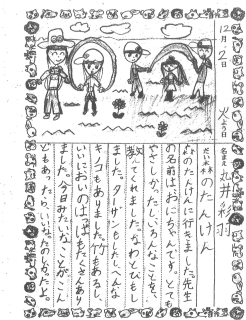 12月2日 火よう日
名まえ 丸井
だい木本のたんけん
なのたんけんに行きました。先生
の名前は、おにちゃんです。とても
やさしかったし、いろんなことを、
教えてくれました。なわとびもし
ました。ターザンもしたしへんな
キノコもありました。竹もあるし、
いいにおいのはっぱもたくさんあり
ました。今日みたいなことがこん
どもあったら、いいなとおもったよ。